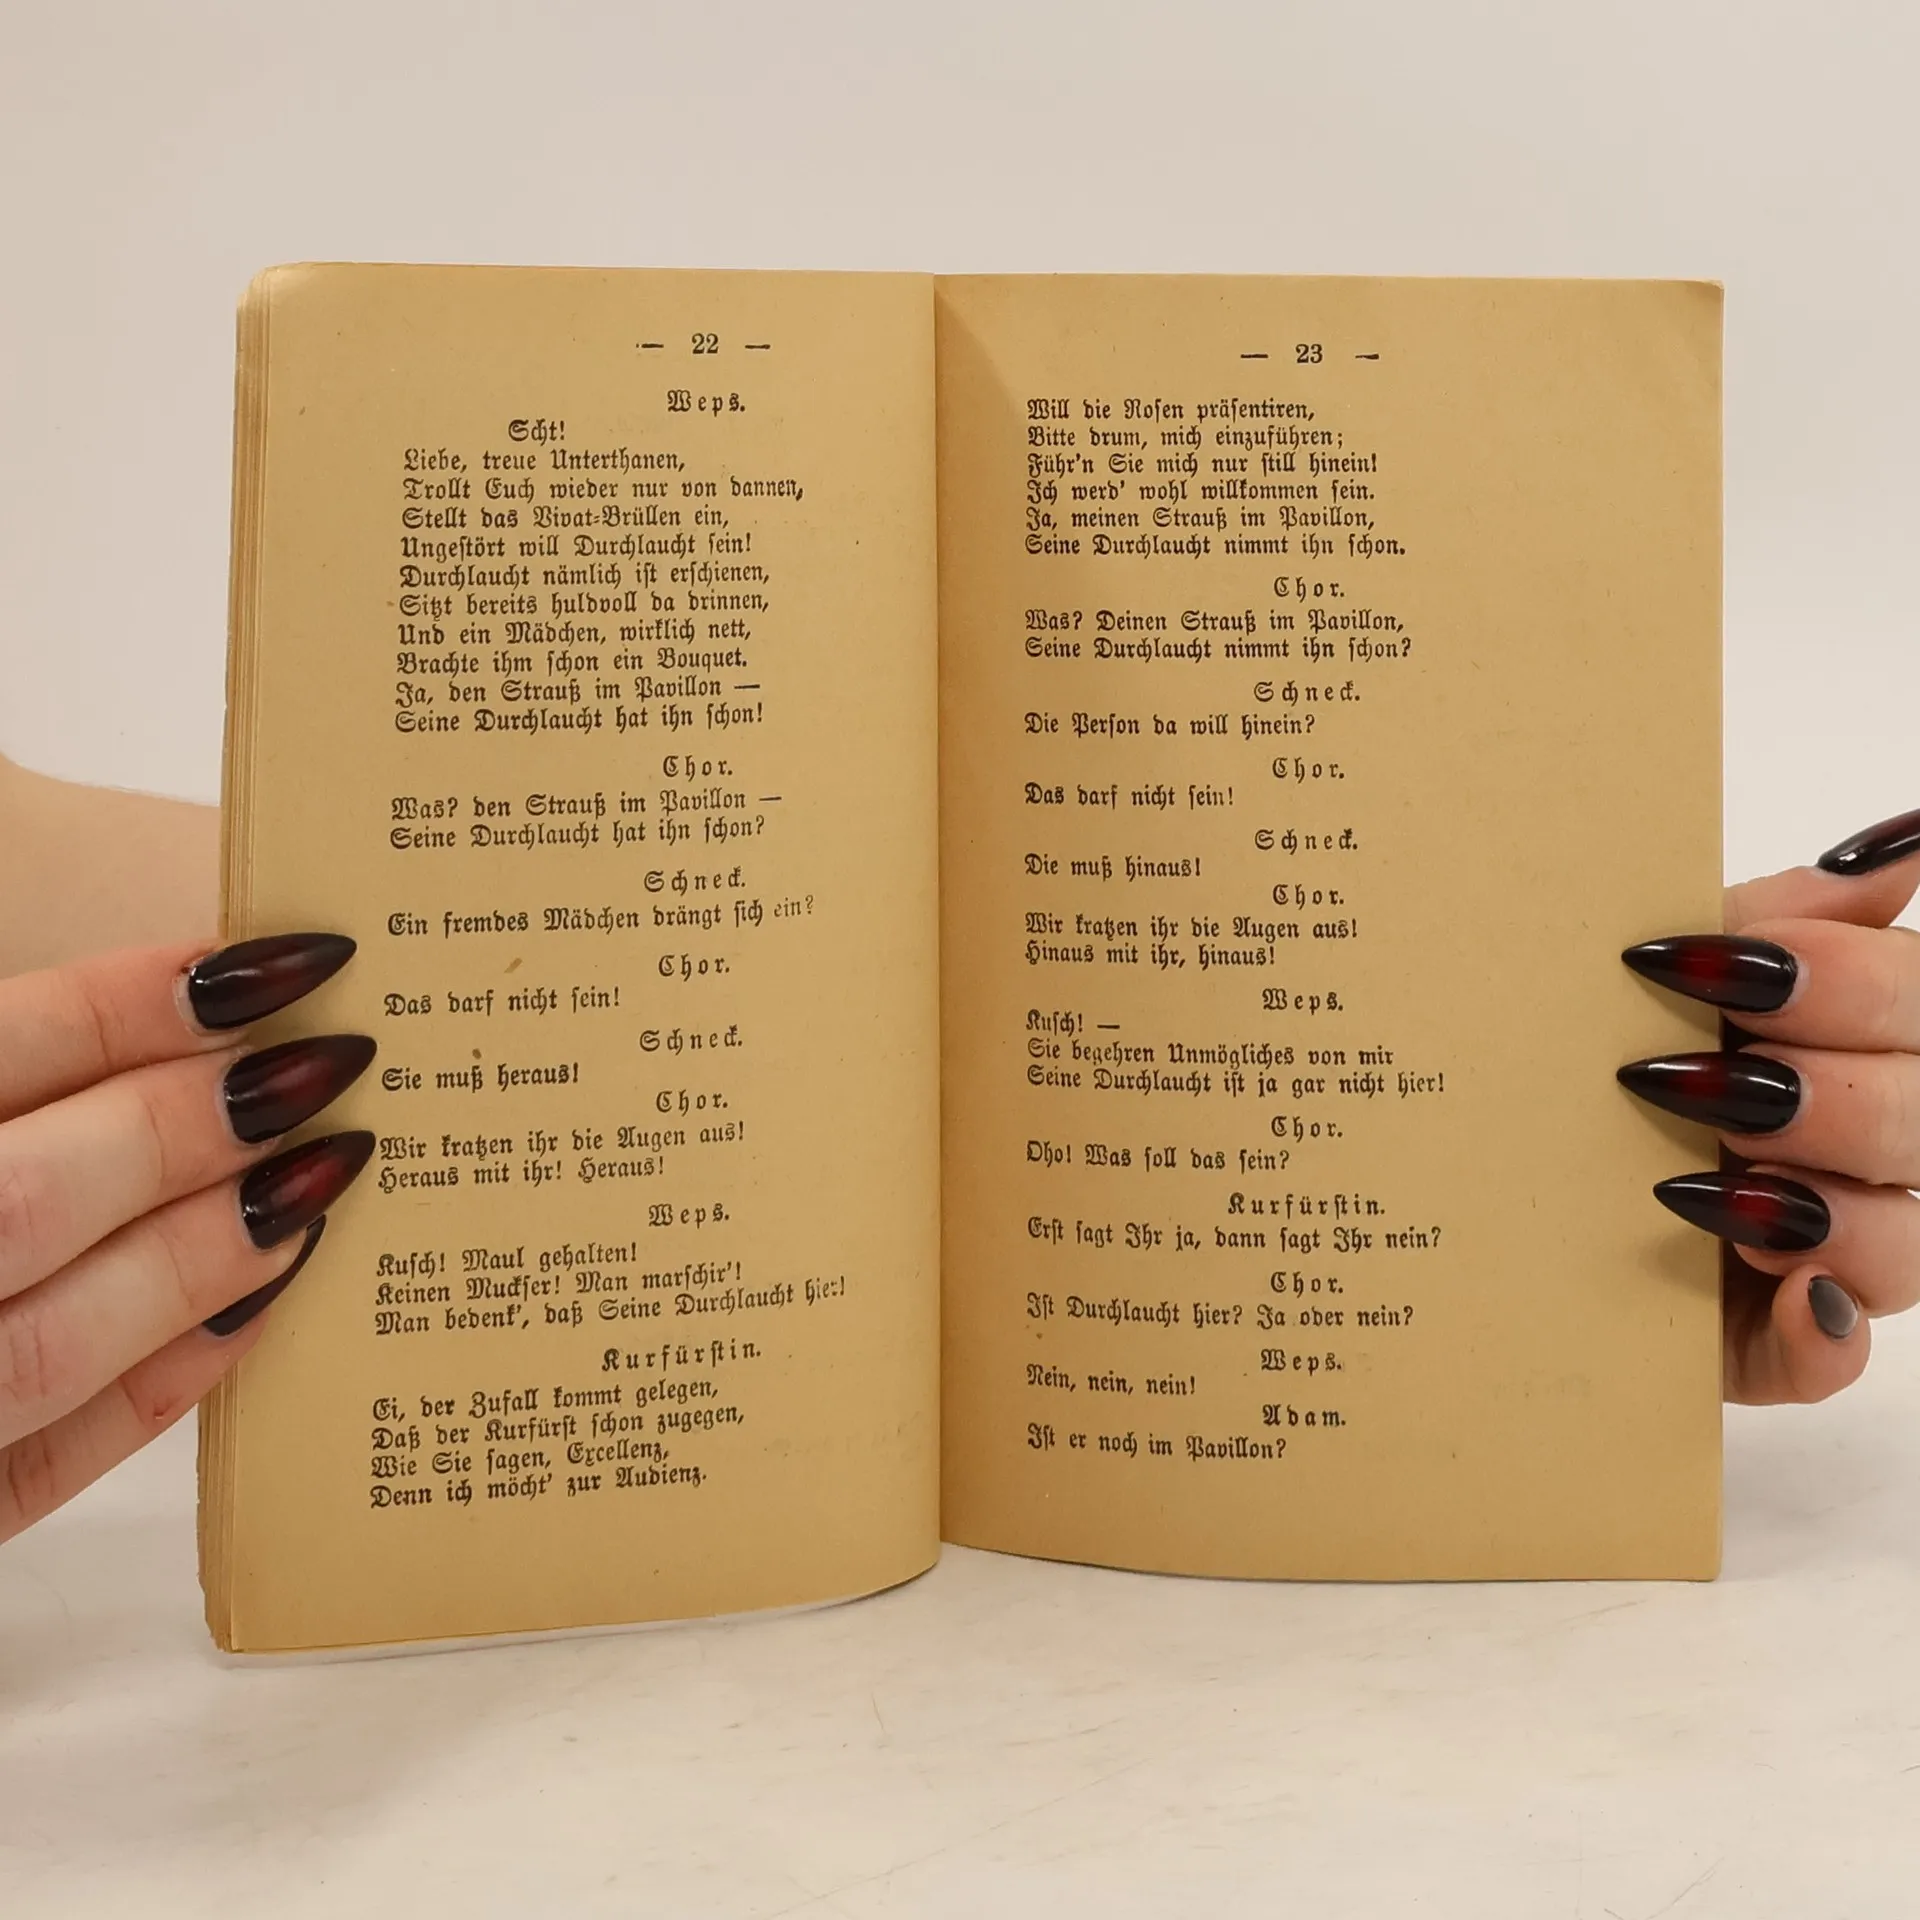 — 22 —
Weps.
Scht!
Liebe, treue Unterthanen,
Trollt Euch wieder nur von dannen,
Stellt das Vivat-Brüllen ein,
Ungestört will Durchlaucht sein!
Durchlaucht nämlich ist erschienen,
Sitzt bereits huldvoll da drinnen,
Und ein Mädchen, wirklich nett,
Brachte ihm schon ein Bouquet.
Ja, den Strauß im Pavillon —
Seine Durchlaucht hat ihn schon!
Chor.
Was? den Strauß im Pavillon —
Seine Durchlaucht hat ihn schon?
Schneck.
Ein fremdes Mädchen drängt sich ein?
Chor.
Das darf nicht sein!
Schneck.
Sie muß heraus!
Chor.
Wir kratzen ihr die Augen aus!
Heraus mit ihr! Heraus!
Weps.
Kusch! Maul gehalten!
Keinen Muckser! Man marschir'!
Man bedenk', daß Seine Durchlaucht hier!
Kurfürstin.
Ei, der Zufall kommt gelegen,
Daß der Kurfürst schon zugegen,
Wie Sie sagen, Excellenz,
Denn ich möcht' zur Audienz.
— 23 —
Will die Rosen präsentiren,
Bitte drum, mich einzuführen;
Führ'n Sie mich nur still hinein!
Ich werd' wohl willkommen sein.
Ja, meinen Strauß im Pavillon,
Seine Durchlaucht nimmt ihn schon.
Chor.
Was? Deinen Strauß im Pavillon,
Seine Durchlaucht nimmt ihn schon?
Schneck.
Die Person da will hinein?
Chor.
Das darf nicht sein!
Schneck.
Die muß hinaus!
Chor.
Wir kratzen ihr die Augen aus!
Hinaus mit ihr, hinaus!
Weps.
Kusch! —
Sie begehren Unmögliches von mir
Seine Durchlaucht ist ja gar nicht hier!
Chor.
Oho! Was soll das sein?
Kurfürstin.
Erst sagt Ihr ja, dann sagt Ihr nein?
Chor.
Ist Durchlaucht hier? Ja oder nein?
Weps.
Nein, nein, nein!
Adam.
Ist er noch im Pavillon?